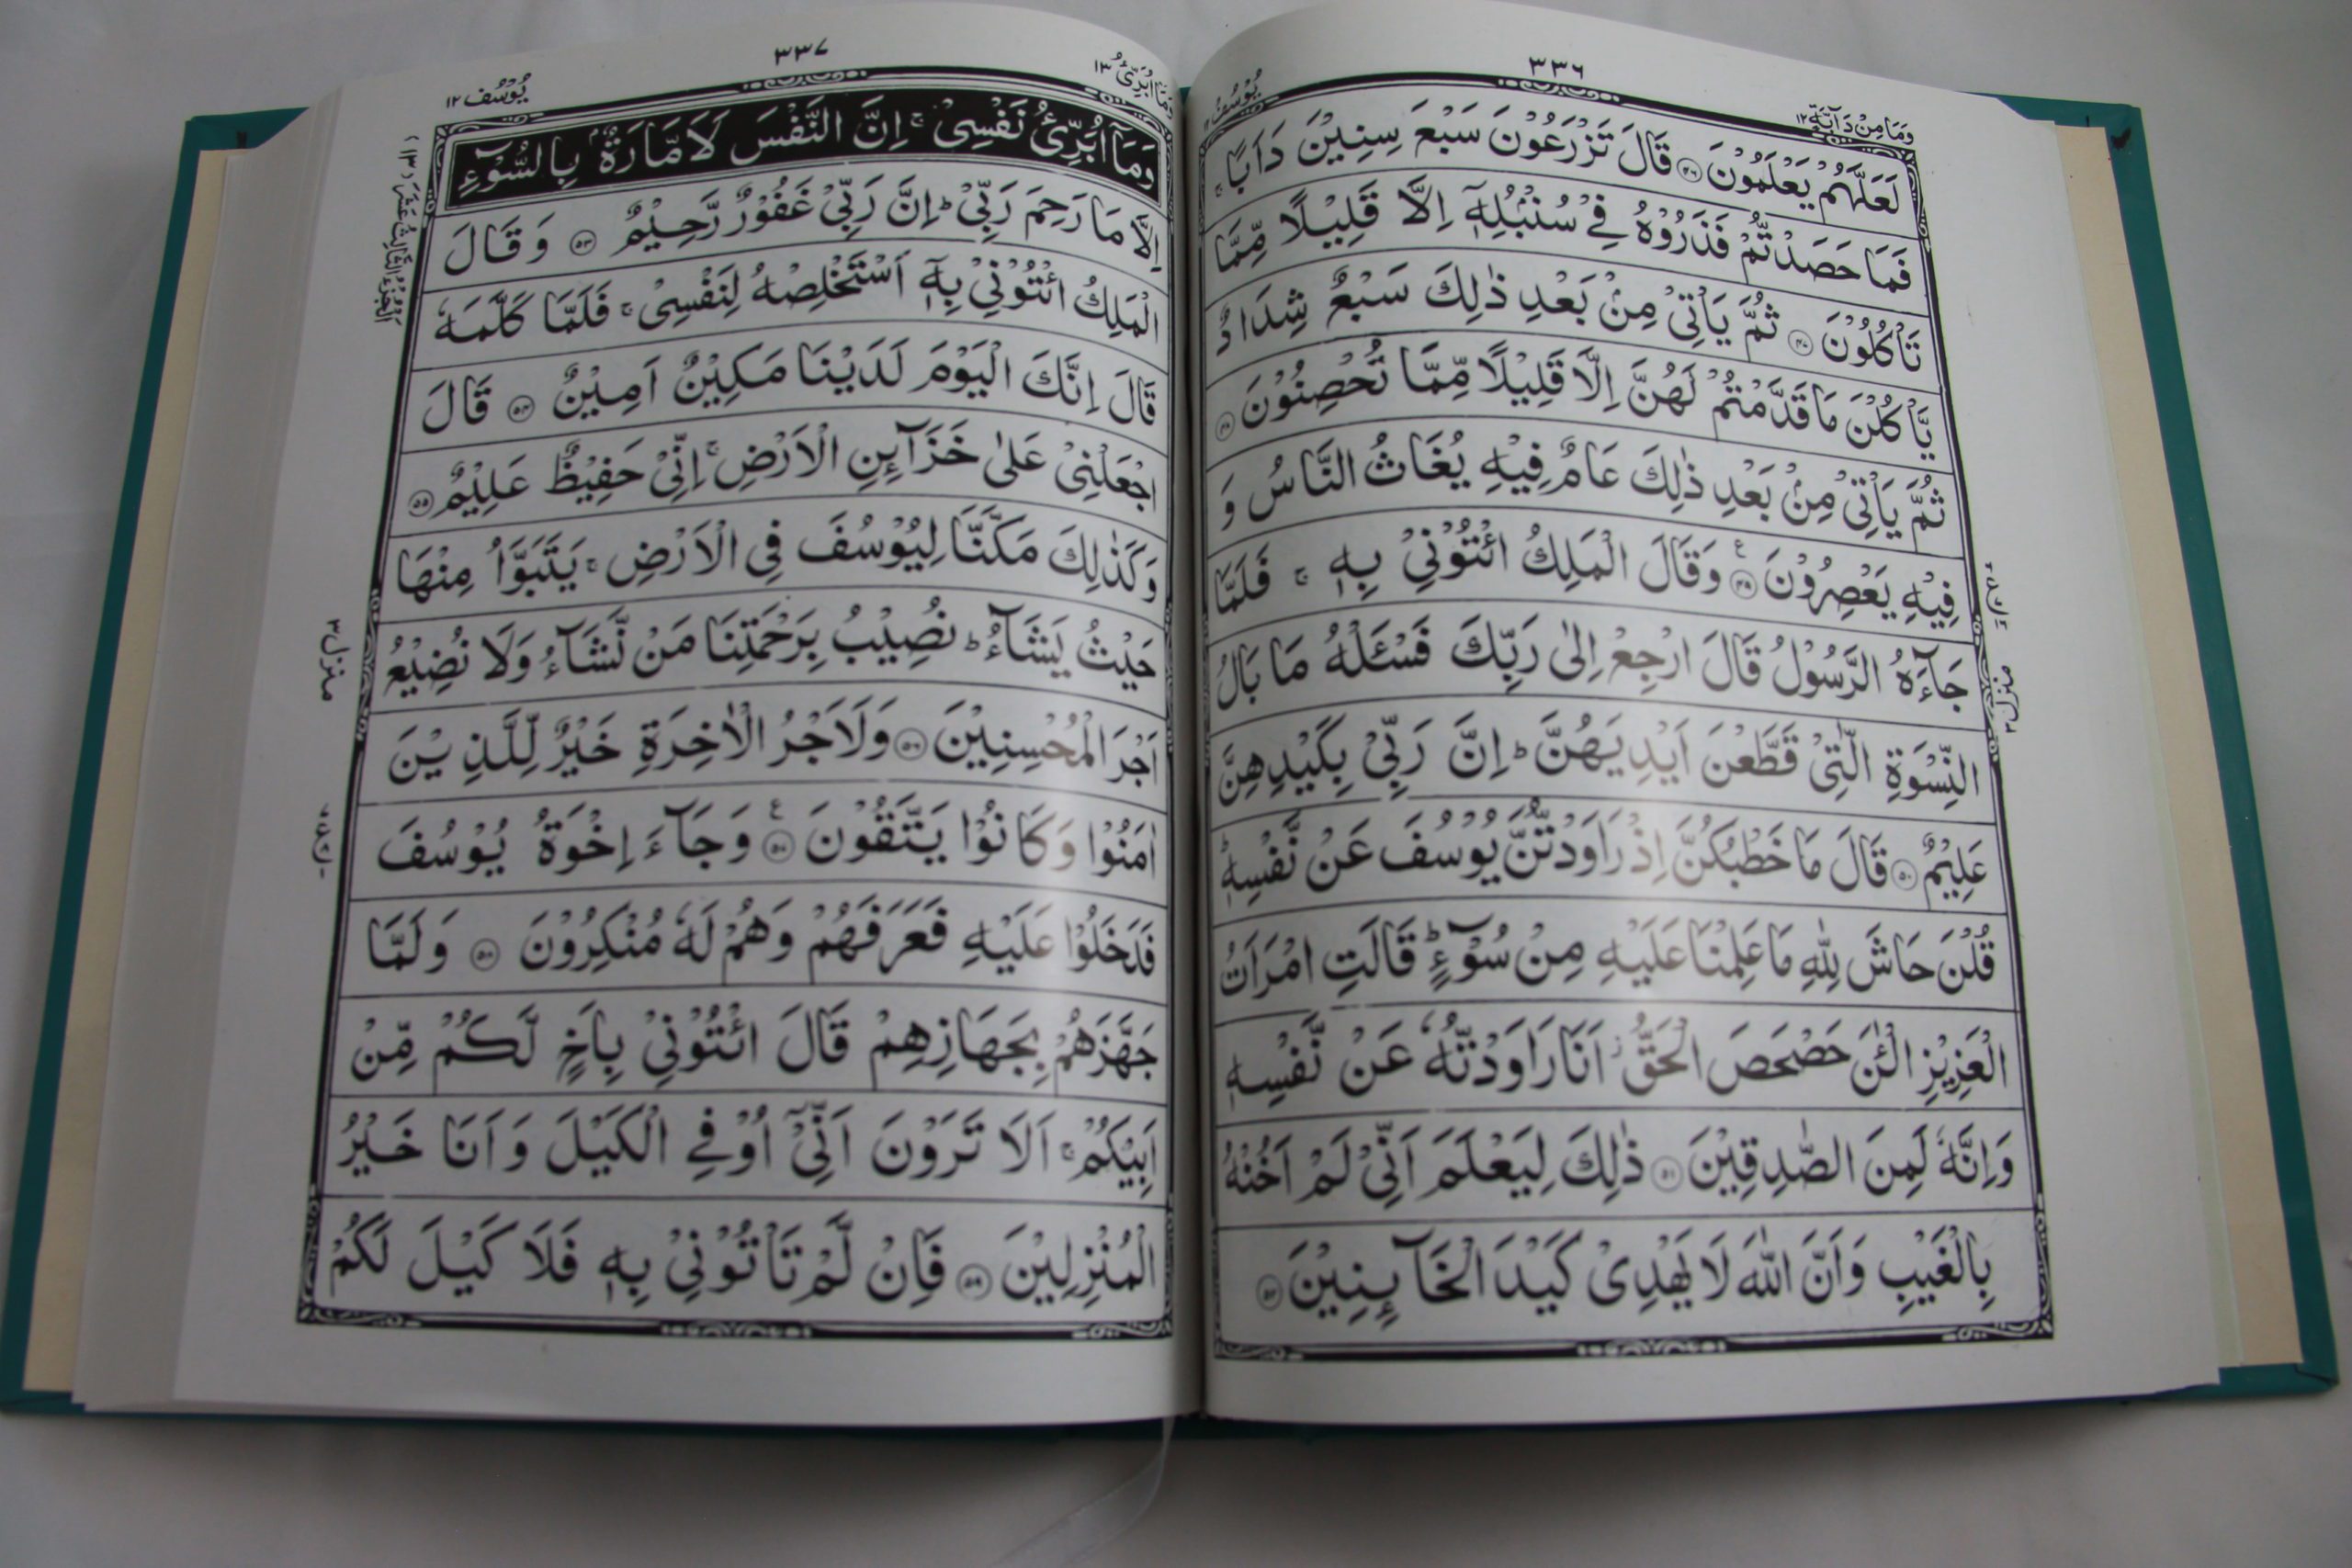 وَمَا مِنْ دَآبَّةٍ ١٢
٣٣٦
يُوْسُف
لَعَلَّهُمْ يَعْلَمُوْنَ ۝٤٦ قَالَ تَزْرَعُوْنَ سَبْعَ سِنِيْنَ دَاَبًا ۚ
فَمَا حَصَدْتُّمْ فَذَرُوْهُ فِيْ سُنْۢبُلِهٖٓ اِلَّا قَلِيْلًا مِّمَّا
تَاْكُلُوْنَ ۝٤٧ ثُمَّ يَاْتِيْ مِنْۢ بَعْدِ ذٰلِكَ سَبْعٌ شِدَادٌ
يَّاْكُلْنَ مَا قَدَّمْتُمْ لَهُنَّ اِلَّا قَلِيْلًا مِّمَّا تُحْصِنُوْنَ ۝٤٨
ثُمَّ يَاْتِيْ مِنْۢ بَعْدِ ذٰلِكَ عَامٌ فِيْهِ يُغَاثُ النَّاسُ وَ
فِيْهِ يَعْصِرُوْنَ ۝٤٩ ع وَقَالَ الْمَلِكُ ائْتُوْنِيْ بِهٖ ۚ فَلَمَّا
جَآءَهُ الرَّسُوْلُ قَالَ ارْجِعْ اِلٰى رَبِّكَ فَسْـَٔلْهُ مَا بَالُ
النِّسْوَةِ الّٰتِيْ قَطَّعْنَ اَيْدِيَهُنَّ ؕ اِنَّ رَبِّيْ بِكَيْدِهِنَّ
عَلِيْمٌ ۝٥٠ قَالَ مَا خَطْبُكُنَّ اِذْ رَاوَدْتُّنَّ يُوْسُفَ عَنْ نَّفْسِهٖ ؕ
قُلْنَ حَاشَ لِلّٰهِ مَا عَلِمْنَا عَلَيْهِ مِنْ سُوْٓءٍ ؕ قَالَتِ امْرَاَتُ
الْعَزِيْزِ الْـٰٔنَ حَصْحَصَ الْحَقُّ ؗ اَنَا رَاوَدْتُّهٗ عَنْ نَّفْسِهٖ
وَاِنَّهٗ لَمِنَ الصّٰدِقِيْنَ ۝٥١ ذٰلِكَ لِيَعْلَمَ اَنِّيْ لَمْ اَخُنْهُ
بِالْغَيْبِ وَاَنَّ اللّٰهَ لَا يَهْدِيْ كَيْدَ الْخَآئِنِيْنَ ۝٥٢
منزل ٣
وَمَآ اُبَرِّئُ ١٣
٣٣٧
يُوْسُف ١٢
وَمَآ اُبَرِّئُ نَفْسِيْ ۚ اِنَّ النَّفْسَ لَاَمَّارَةٌۢ بِالسُّوْٓءِ
اِلَّا مَا رَحِمَ رَبِّيْ ؕ اِنَّ رَبِّيْ غَفُوْرٌ رَّحِيْمٌ ۝٥٣ وَقَالَ
الْمَلِكُ ائْتُوْنِيْ بِهٖٓ اَسْتَخْلِصْهُ لِنَفْسِيْ ۚ فَلَمَّا كَلَّمَهٗ
قَالَ اِنَّكَ الْيَوْمَ لَدَيْنَا مَكِيْنٌ اَمِيْنٌ ۝٥٤ قَالَ
اجْعَلْنِيْ عَلٰى خَزَآئِنِ الْاَرْضِ ۚ اِنِّيْ حَفِيْظٌ عَلِيْمٌ ۝٥٥
وَكَذٰلِكَ مَكَّنَّا لِيُوْسُفَ فِي الْاَرْضِ ۚ يَتَبَوَّاُ مِنْهَا
حَيْثُ يَشَآءُ ؕ نُصِيْبُ بِرَحْمَتِنَا مَنْ نَّشَآءُ وَلَا نُضِيْعُ
اَجْرَ الْمُحْسِنِيْنَ ۝٥٦ وَلَاَجْرُ الْاٰخِرَةِ خَيْرٌ لِّلَّذِيْنَ
اٰمَنُوْا وَكَانُوْا يَتَّقُوْنَ ۝٥٧ ع وَجَآءَ اِخْوَةُ يُوْسُفَ
فَدَخَلُوْا عَلَيْهِ فَعَرَفَهُمْ وَهُمْ لَهٗ مُنْكِرُوْنَ ۝٥٨ وَلَمَّا
جَهَّزَهُمْ بِجَهَازِهِمْ قَالَ ائْتُوْنِيْ بِاَخٍ لَّكُمْ مِّنْ
اَبِيْكُمْ ۚ اَلَا تَرَوْنَ اَنِّيْٓ اُوْفِي الْكَيْلَ وَاَنَا خَيْرُ
الْمُنْزِلِيْنَ ۝٥٩ فَاِنْ لَّمْ تَاْتُوْنِيْ بِهٖ فَلَا كَيْلَ لَكُمْ
اَلْجُزْءُ الثَّالِثُ عَشَرَ (١٣)
منزل ٣